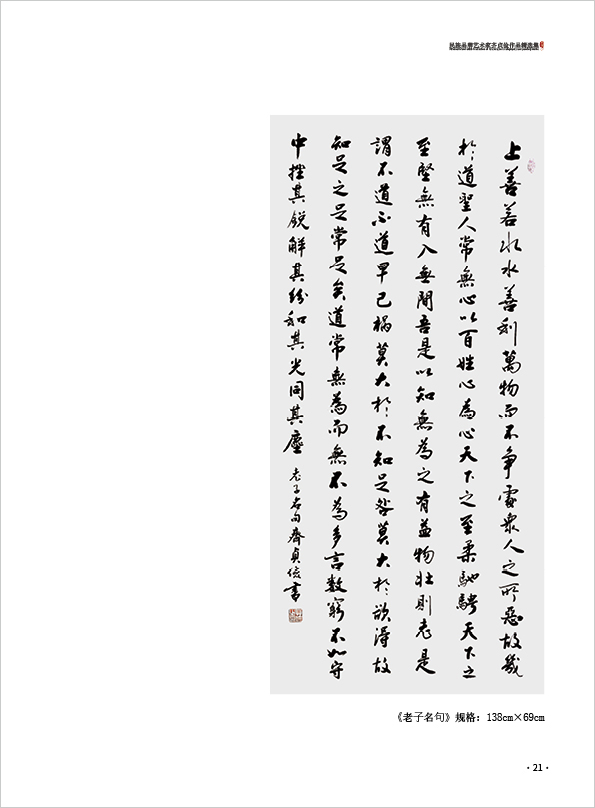 上善若水水善利萬物而不争處衆人之所惡故幾
於道聖人常無心以百姓心為心天下之至柔馳騁天下之
至堅無有入無間吾是以知無為之有益物壯則老是
謂不道不道早已禍莫大於不知足咎莫大於欲得故
知足之足常足矣道常無為而無不為多言數窮不如守
中挫其銳解其紛和其光同其塵
老子名句齊貞書
《老子名句》规格：138cm×69cm
·21·